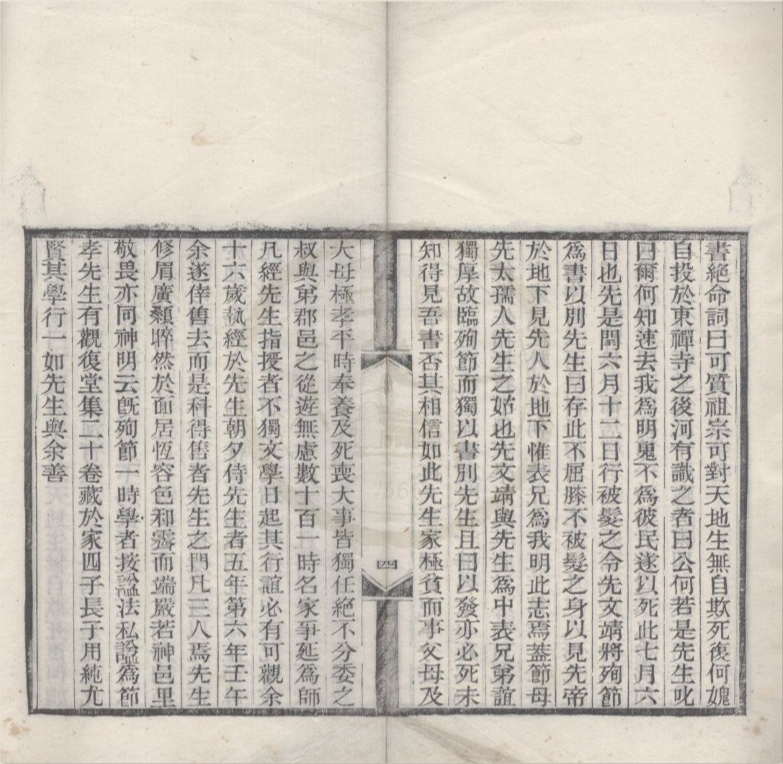 書絕命詞曰可質祖宗可對天地生無自欺死復何媿
自投於東禪寺之後河有識之者曰公何若是先生叱
曰爾何知速去我為明鬼不為彼民遂以死此七月六
日也先是閏六月十二日行被髮之令先文靖將殉節
為書以別先生曰存此不屈膝不被髮之身以見先帝
於地下見先人於地下惟表兄為我明此志焉蓋節母
先太孺人先生之姊也先文靖與先生為中表兄弟誼
獨厚故臨殉節而獨以書別先生且曰以發亦必死未
知得見吾書否其相信如此先生家極貧而事父母及
四
大母極孝平時奉養及死喪大事皆獨任絕不分委之
叔與弟郡邑之從遊無慮數十百一時名家爭延為師
凡經先生指授者不獨文學日起其行誼必有可觀余
十六歲執經於先生朝夕侍先生者五年第六年壬午
余遂倖售去而是科得售者先生之門凡三人焉先生
修眉廣顙睟然於面居恆容色和霽而端嚴若神邑里
敬畏亦同神明云旣殉節一時學者按諡法私諡為節
孝先生有觀復堂集二十卷藏於家四子長子用純尤
賢其學行一如先生與余善